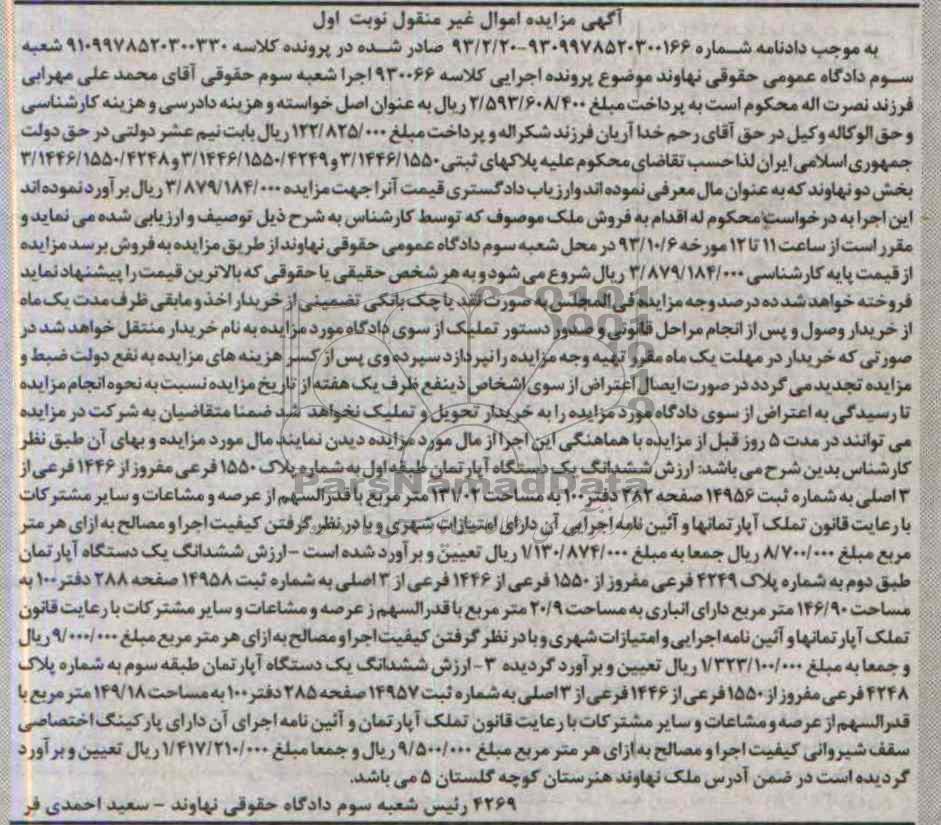 آگهی مزایده اموال غیر منقول نوبت اول
به موجب دادنامه شماره ۹۳۰۹۹۷۸۵۲۰۳۰۰۱۶۶-۹۳/۲/۲۰ صادر شده در پرونده کلاسه ۹۱۰۹۹۷۸۵۲۰۳۰۰۳۳۰ شعبه
سوم دادگاه عمومی حقوقی نهاوند موضوع پرونده اجرایی کلاسه ۹۳۰۰۶۶ اجرا شعبه سوم حقوقی آقای محمد علی مهرابی
فرزند نصرت اله محکوم است به پرداخت مبلغ ۲/۵۹۳/۶۰۸/۴۰۰ ریال به عنوان اصل خواسته و هزینه دادرسی و هزینه کارشناسی
و حق الوکاله وکیل در حق آقای رحم خدا آریان فرزند شکراله و پرداخت مبلغ ۱۲۲/۸۲۵/۰۰۰ ریال بابت نیم عشر دولتی در حق دولت
جمهوری اسلامی ایران لذا حسب تقاضای محکوم علیه پلاکهای ثبتی ۳/۱۴۴۶/۱۵۵۰ و ۳/۱۴۴۶/۱۵۵۰/۴۲۴۹ و ۳/۱۴۴۶/۱۵۵۰/۴۲۴۸
بخش دو نهاوند که به عنوان مال معرفی نموده اند وارزیاب دادگستری قیمت آنرا جهت مزایده ۳/۸۷۹/۱۸۴/۰۰۰ ریال بر آورد نموده اند
این اجرا به درخواست محکوم له اقدام به فروش ملک موصوف که توسط کارشناس به شرح ذیل توصیف و ارزیابی شده می نماید و
مقرر است از ساعت ۱۱ تا ۱۲ مورخه ۹۳/۱۰/۶ در محل شعبه سوم دادگاه عمومی حقوقی نهاوند از طریق مزایده به فروش برسد مزایده
از قیمت پایه کارشناسی ۳/۸۷۹/۱۸۴/۰۰۰ ریال شروع می شود و به هر شخص حقیقی یا حقوقی که بالاترین قیمت را پیشنهاد نماید
فروخته خواهد شد ده درصد وجه مزایده فی المجلس به صورت نقد یا چک بانکی تضمینی از خریدار اخذ و مابقی ظرف مدت یک ماه
از خریدار وصول و پس از انجام مراحل قانونی و صدور دستور تملیک از سوی دادگاه مورد مزایده به نام خریدار منتقل خواهد شد در
صورتی که خریدار در مهلت یک ماه مقرر تهیه وجه مزایده را نپردازد سپرده وی پس از کسر هزینه های مزایده به نفع دولت ضبط و
مزایده تجدید می گردد در صورت ایصال اعتراض از سوی اشخاص ذینفع ظرف یک هفته از تاریخ مزایده نسبت به نحوه انجام مزایده
تا رسیدگی به اعتراض از سوی دادگاه مورد مزایده را به خریدار تحویل و تملیک نخواهد شد ضمنا متقاضیان به شرکت در مزایده
می توانند در مدت ۵ روز قبل از مزایده با هماهنگی این اجرا از مال مورد مزایده دیدن نمایند مال مورد مزایده و بهای آن طبق نظر
کارشناس بدین شرح می باشد: ارزش ششدانگ یک دستگاه آپارتمان طبقه اول به شماره پلاک ۱۵۵۰ فرعی مفروز از ۱۴۴۶ فرعی از
۳ اصلی به شماره ثبت ۱۴۹۵۶ صفحه ۲۸۲ دفتر ۱۰۰ به مساحت ۱۳۱/۰۲ متر مربع با قدرالسهم از عرصه و مشاعات و سایر مشترکات
با رعایت قانون تملک آپارتمانها و آئین نامه اجرایی آن دارای امتیازات شهری و با در نظر گرفتن کیفیت اجرا و مصالح به ازای هر متر
مربع مبلغ ۸/۷۰۰/۰۰۰ ریال جمعا به مبلغ ۱/۱۳۰/۸۷۴/۰۰۰ ریال تعیین و بر آورد شده است -ارزش ششدانگ یک دستگاه آپارتمان
طبق دوم به شماره پلاک ۴۲۴۹ فرعی مفروز از ۱۵۵۰ فرعی از ۱۴۴۶ فرعی از ۳ اصلی به شماره ثبت ۱۴۹۵۸ صفحه ۲۸۸ دفتر ۱۰۰ به
مساحت ۱۴۶/۹۰ متر مربع دارای انباری به مساحت ۲۰/۹ متر مربع با قدرالسهم ز عرصه و مشاعات و سایر مشترکات با رعایت قانون
تملک آپارتمانها و آئین نامه اجرایی و امتیازات شهری و با در نظر گرفتن کیفیت اجرا و مصالح به ازای هر متر مربع مبلغ ۹/۰۰۰/۰۰۰ ریال
و جمعا به مبلغ ۱/۳۲۳/۱۰۰/۰۰۰ ریال تعیین و بر آورد گردیده ۳- ارزش ششدانگ یک دستگاه آپارتمان طبقه سوم به شماره پلاک
۴۲۴۸ فرعی مفروز از ۱۵۵۰ فرعی از ۱۴۴۶ فرعی از ۳ اصلی به شماره ثبت ۱۴۹۵۷ صفحه ۲۸۵ دفتر ۱۰۰ به مساحت ۱۴۹/۱۸ متر مربع با
قدرالسهم از عرصه و مشاعات و سایر مشترکات با رعایت قانون تملک آپارتمان و آئین نامه اجرای آن دارای پارکینگ اختصاصی
سقف شیروانی کیفیت اجرا و مصالح به ازای هر متر مربع مبلغ ۹/۵۰۰/۰۰۰ ریال و جمعا مبلغ ۱/۴۱۷/۲۱۰/۰۰۰ ریال تعیین و بر آورد
گردیده است در ضمن آدرس ملک نهاوند هنرستان کوچه گلستان ۵ می باشد.
۴۲۶۹ رئیس شعبه سوم دادگاه حقوقی نهاوند - سعید احمدی فر
ParsNamadData